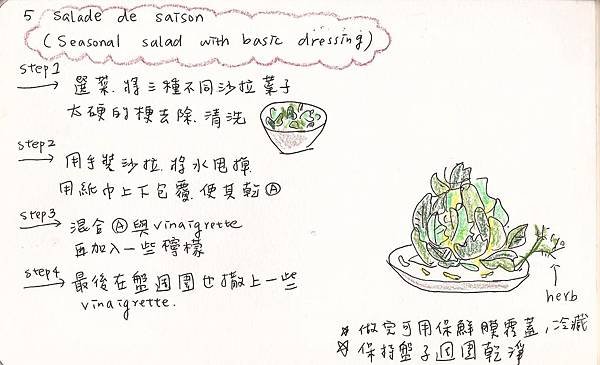 5 salade de saison
(Seasonal salad with basic dressing)
step1
選葉.將三種不同沙拉葉子
太硬的梗去除.清洗
step2
用手雙沙拉.將水甩揮.
用紙巾上下包覆.使其乾Ⓐ
step3
混合Ⓐ與vinaigrette
再加入一些檸檬
step4
最後在盤周圍也撒上一些
vinaigrette.
herb
☆ 做完可用保鮮膜覆蓋,冷藏
☆ 保持盤子週圍乾淨